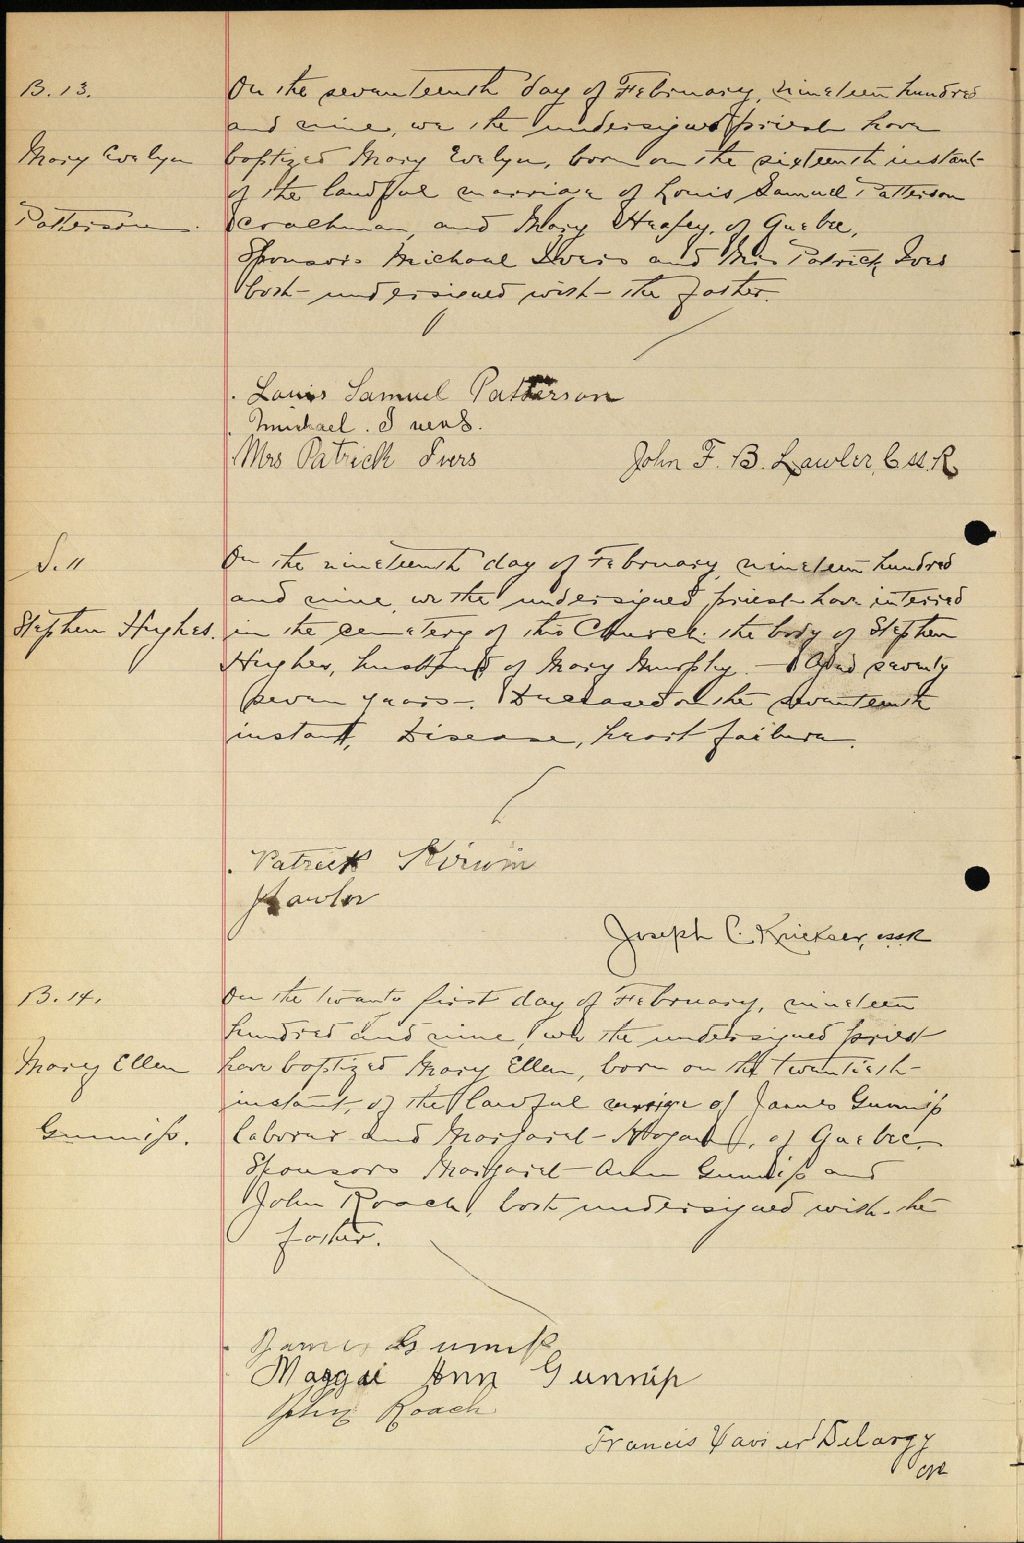 B. 13.
Mary Evelyn
Patterson.
On the seventeenth day of February, nineteen hundred
and nine, we the undersigned priest have
baptized Mary Evelyn, born on the sixteenth instant
of the lawful marriage of Louis Samuel Patterson
coachman, and Mary Heafey, of Quebec,
Sponsors Michael Ivers and Mrs Patrick Ivers
both undersigned with the father.
Louis Samuel Patterson
Michael. Ivers.
Mrs Patrick Ivers
John F. B. Lawler, C.SS.R.
S. 11
Stephen Hughes.
On the nineteenth day of February, nineteen hundred
and nine, we the undersigned priest have interred
in the cemetery of this Church the body of Stephen
Hughes, husband of Mary Murphy. — Aged seventy
seven years —. Deceased on the seventeenth
instant, Disease, heart failure.
Patrick Kirwin
Lawlor
Joseph C. Krieser, CSSR
B. 14.
Mary Ellen
Gunnip.
On the twenty first day of February, nineteen
hundred and nine, we the undersigned priest
have baptized Mary Ellen, born on the twentieth
instant, of the lawful marriage of James Gunnip
laborer and Margaret Hogan, of Quebec.
Sponsors Margaret Ann Gunnip and
John Roach, both undersigned with the
father.
James Gunnip
Maggie Ann Gunnip
John Roach
Francis Xavier Delargy